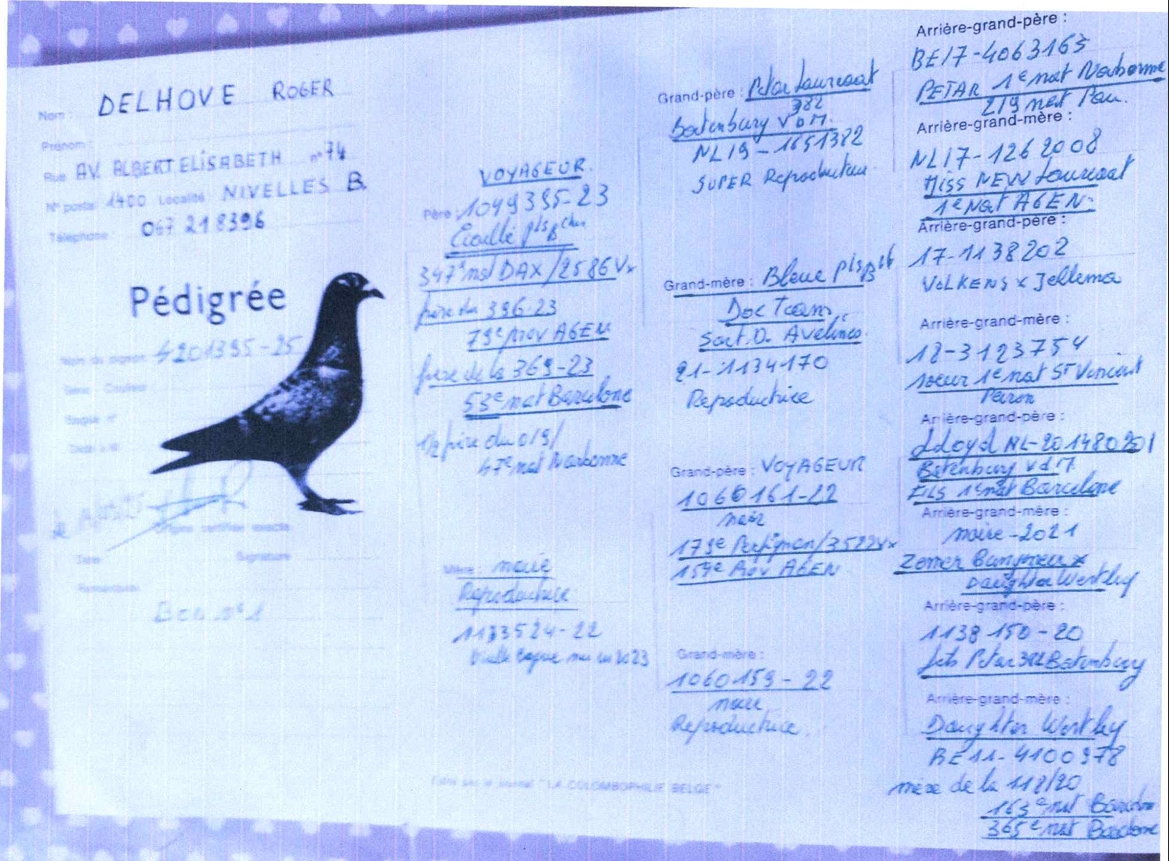 Nom : DELHOVE ROGER
Prénom :
Rue AV. ALBERT ELISABETH n° 74
N° postal 1400 Localité NIVELLES B.
Téléphone : 067 218396
Pédigrée
Nom du pigeon 4201395-25
Sexe Couleur
Bague n°
certifiée exacte
Date : Signature
Remarques
Bon n° 1
VOYAGEUR.
Père : 1049395-23
Ecaillé
347e nat DAX / 2586 Vx
frère du 396-23
79e prov AGEN
frère de la 369-23
53e nat Barcelone
1/2 frère du 019/
47e nat Narbonne
Mère : noire
Reproductrice
1133524-22
Vieille bague née en 2023
Grand-père : Petar Laureaat
382
Batenburg V.D.M.
NL19-1651382
SUPER Reproducteur
Grand-mère : Bleue
Doc Team
Sart. D. Avelines
21-1134-170
Reproductrice
Grand-père : VOYAGEUR
1060161-22
noir
179e Perpignan/3522 Vx
159e Prov AGEN
Grand-mère :
1060159-22
noire
Reproductrice.
Arrière-grand-père :
BE17-4063165
PETAR 1e nat Narbonne
219 nat Pau.
Arrière-grand-mère :
NL17-1262008
Miss NEW Laureaat
1e Nat AGEN.
Arrière-grand-père :
17-1138202
VOLKENS x Jellema
Arrière-grand-mère :
18-3123754
soeur 1e nat St Vincent
Arrière-grand-père :
Lloyd NL-201480201
Batenburg v d M
FILS 1e nat Barcelone
Arrière-grand-mère :
noire-2021
Zomer x
Daughter Westley
Arrière-grand-père :
1138150-20
Petar 382 Batenburg
Arrière-grand-mère :
Daughter Westley
BE11-4100978
mère de la 118/20
163e nat Barcelone
365e nat Barcelone
Edité par le journal "LA COLOMBOPHILIE BELGE"